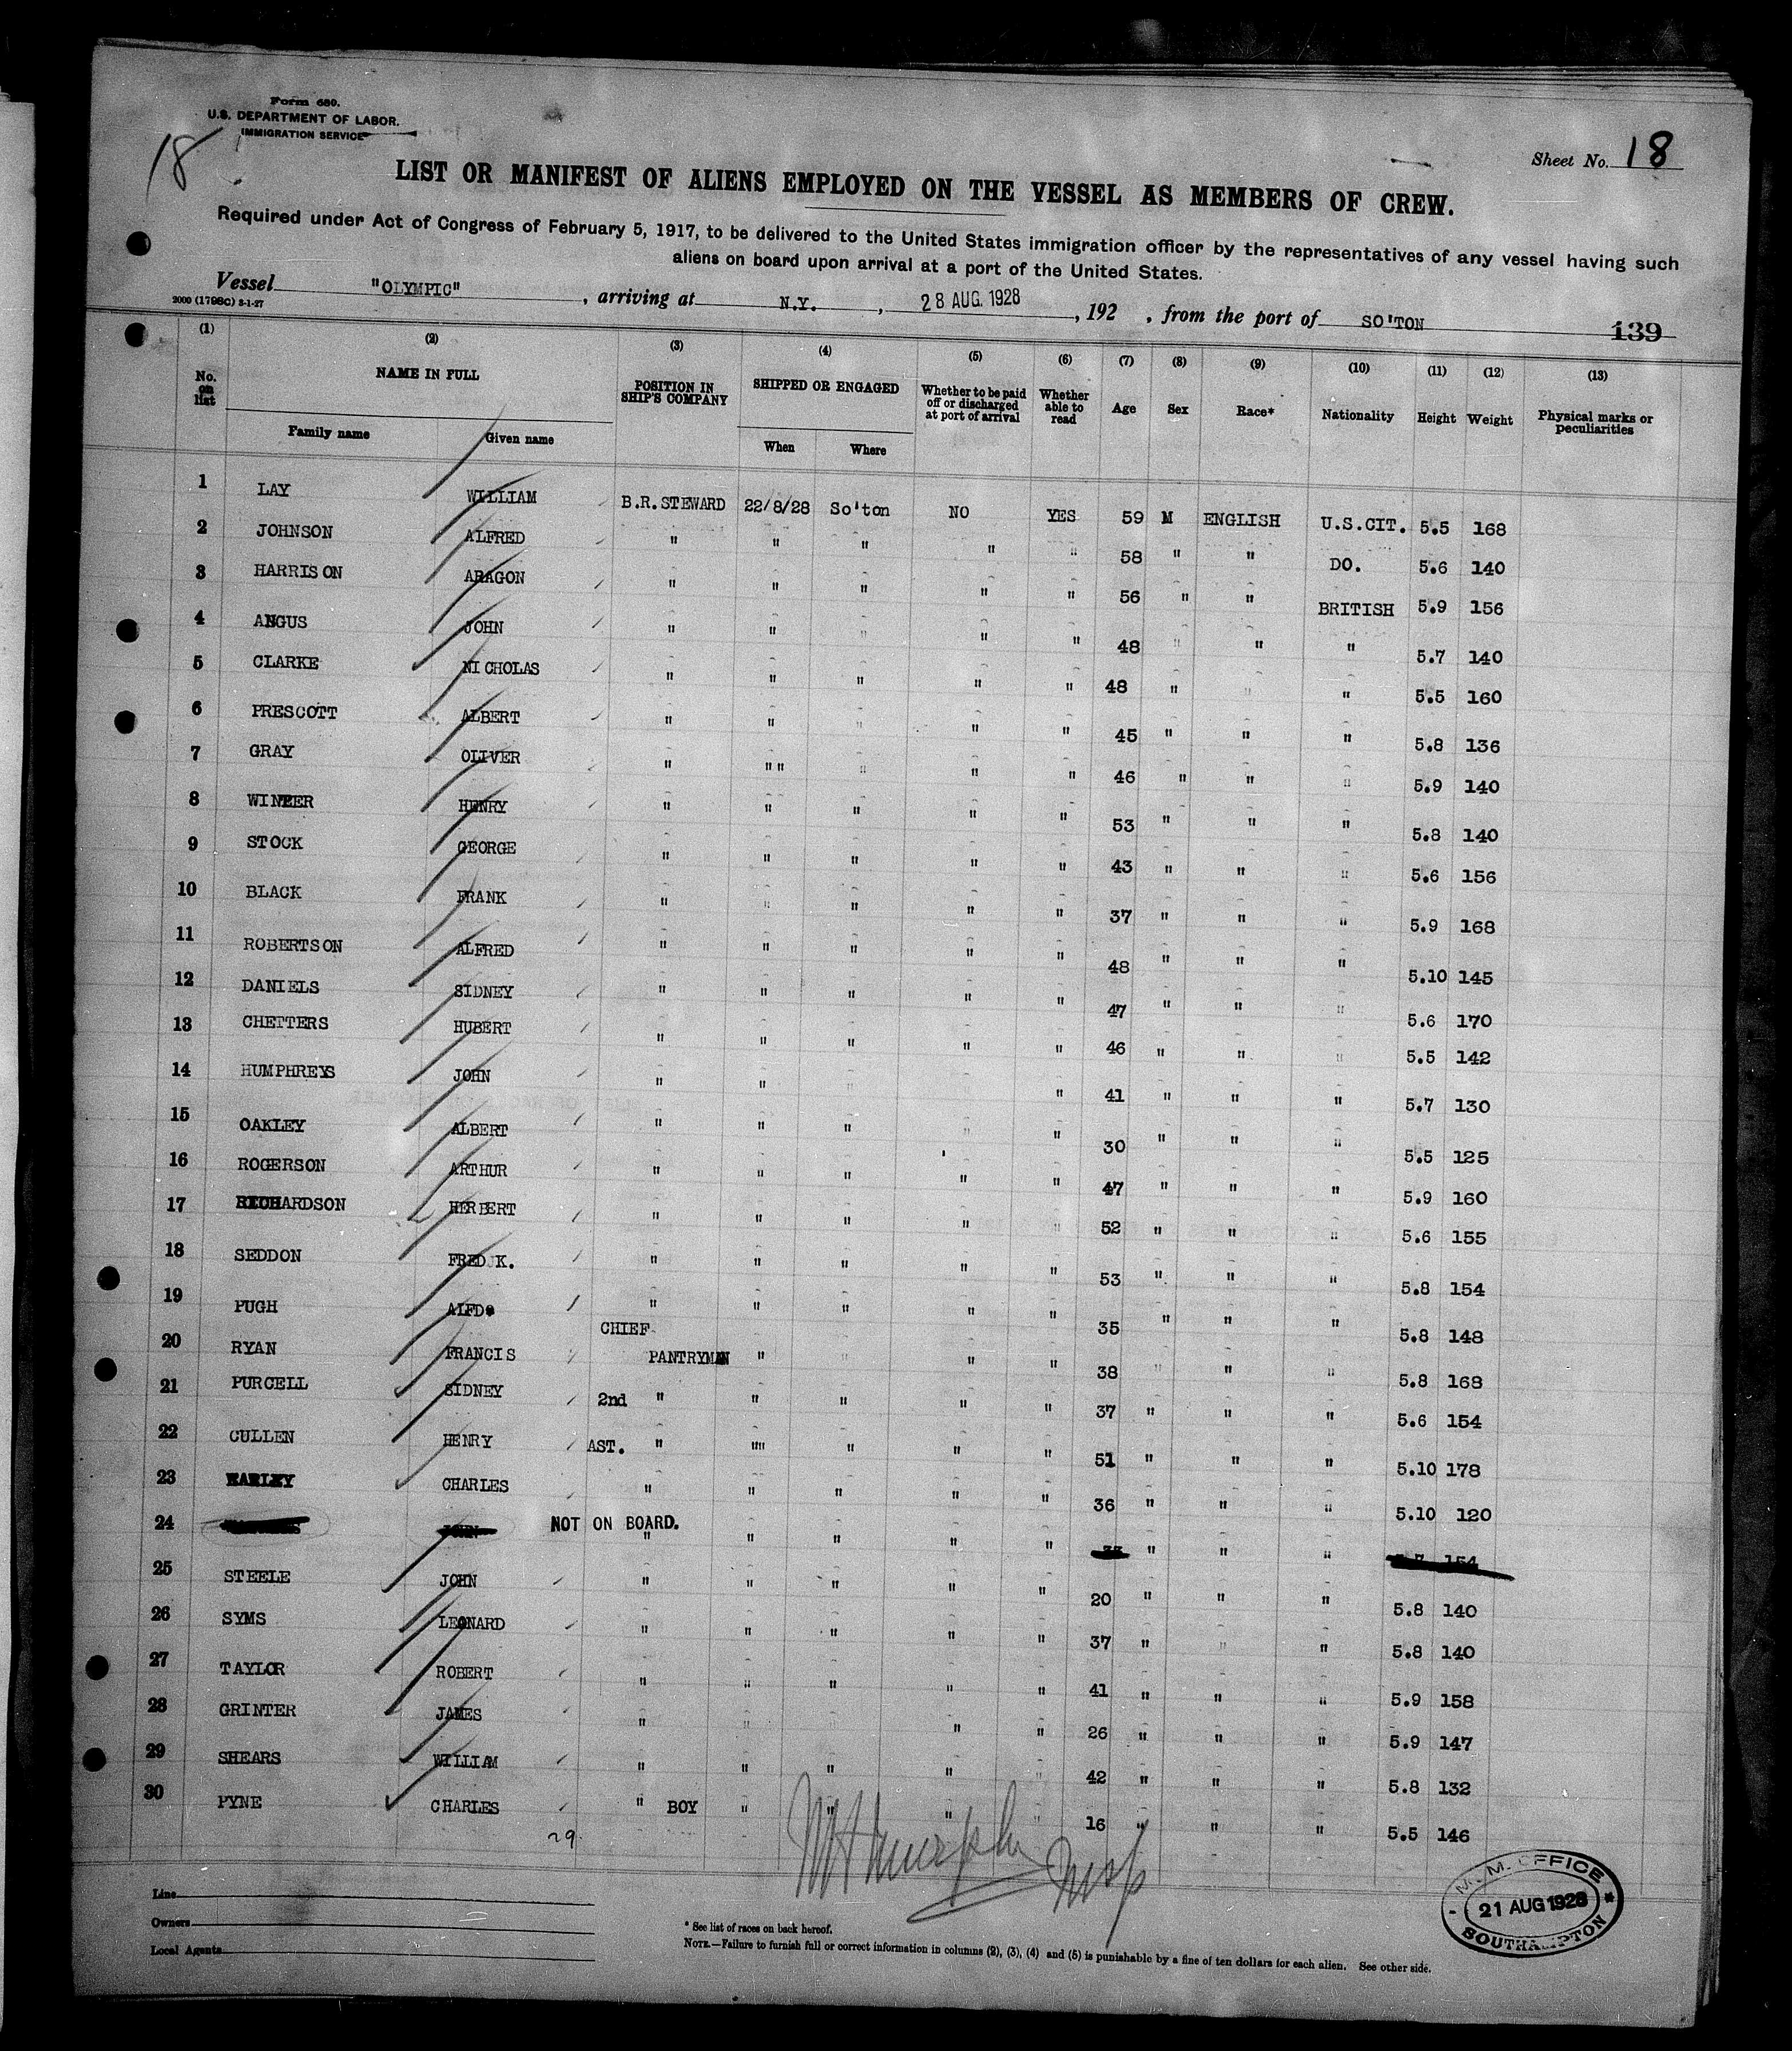 Form 680.
U.S. DEPARTMENT OF LABOR.
IMMIGRATION SERVICE
18
Sheet No. 18
LIST OR MANIFEST OF ALIENS EMPLOYED ON THE VESSEL AS MEMBERS OF CREW.
Required under Act of Congress of February 5, 1917, to be delivered to the United States immigration officer by the representatives of any vessel having such
aliens on board upon arrival at a port of the United States.
Vessel "OLYMPIC", arriving at N.Y., 28 AUG. 1928, 192 , from the port of SO'TON
2000 (1798C) 3-1-27
139
(1) (2) (3) (4) (5) (6) (7) (8) (9) (10) (11) (12) (13)
No. on list NAME IN FULL POSITION IN SHIP'S COMPANY SHIPPED OR ENGAGED Whether to be paid off or discharged at port of arrival Whether able to read Age Sex Race* Nationality Height Weight Physical marks or peculiarities
Family name Given name When Where
1 LAY WILLIAM B.R.STEWARD 22/8/28 So'ton NO YES 59 M ENGLISH U.S.CIT. 5.5 168
2 JOHNSON ALFRED " " " " " 58 " " DO. 5.6 140
3 HARRISON ARAGON " " " " " 56 " " BRITISH 5.9 156
4 ANGUS JOHN " " " " " 48 " " " 5.7 140
5 CLARKE NICHOLAS " " " " " 48 " " " 5.5 160
6 PRESCOTT ALBERT " " " " " 45 " " " 5.8 136
7 GRAY OLIVER " " " " " " 46 " " " 5.9 140
8 HENRY " " " " " 53 " " " 5.8 140
9 STOCK GEORGE " " " " " 43 " " " 5.6 156
10 BLACK FRANK " " " " " 37 " " " 5.9 168
11 ROBERTSON ALFRED " " " " " 48 " " " 5.10 145
12 DANIELS SIDNEY " " " " " 47 " " " 5.6 170
13 CHETTERS HUBERT " " " " " 46 " " " 5.5 142
14 HUMPHREYS JOHN " " " " 41 " " " 5.7 130
15 OAKLEY ALBERT " " " " " 30 " " " 5.5 125
16 ROGERSON ARTHUR " " " " " 47 " " " 5.9 160
17 RICHARDSON HERBERT " " " " " 52 " " " 5.6 155
18 SEDDON FREDK. " " " " " 53 " " " 5.8 154
19 PUGH ALFD. " " " " " 35 " " " 5.8 148
20 RYAN FRANCIS CHIEF PANTRYMAN " " " " 38 " " " 5.8 168
21 PURCELL SIDNEY 2nd " " " " " 37 " " " 5.6 154
22 CULLEN HENRY AST. " "" " " " 51 " " " 5.10 178
23 EARLEY CHARLES " " " " " 36 " " " 5.10 120
24 JOHN NOT ON BOARD. " " " " " " " " 154
25 STEELE JOHN " " " " " 20 " " " 5.8 140
26 SYMS LEONARD " " " " " 37 " " " 5.8 140
27 TAYLOR ROBERT " " " " " 41 " " " 5.9 158
28 GRINTER JAMES " " " " " 26 " " " 5.9 147
29 SHEARS WILLIAM " " " " " 42 " " " 5.8 132
30 PYNE CHARLES " BOY " " " " 16 " " " 5.5 146
29
Line
Owners
Local Agents
* See list of races on back hereof.
NOTE.—Failure to furnish full or correct information in columns (2), (3), (4) and (5) is punishable by a fine of ten dollars for each alien. See other side.
M.M. OFFICE
21 AUG 1928
SOUTHAMPTON